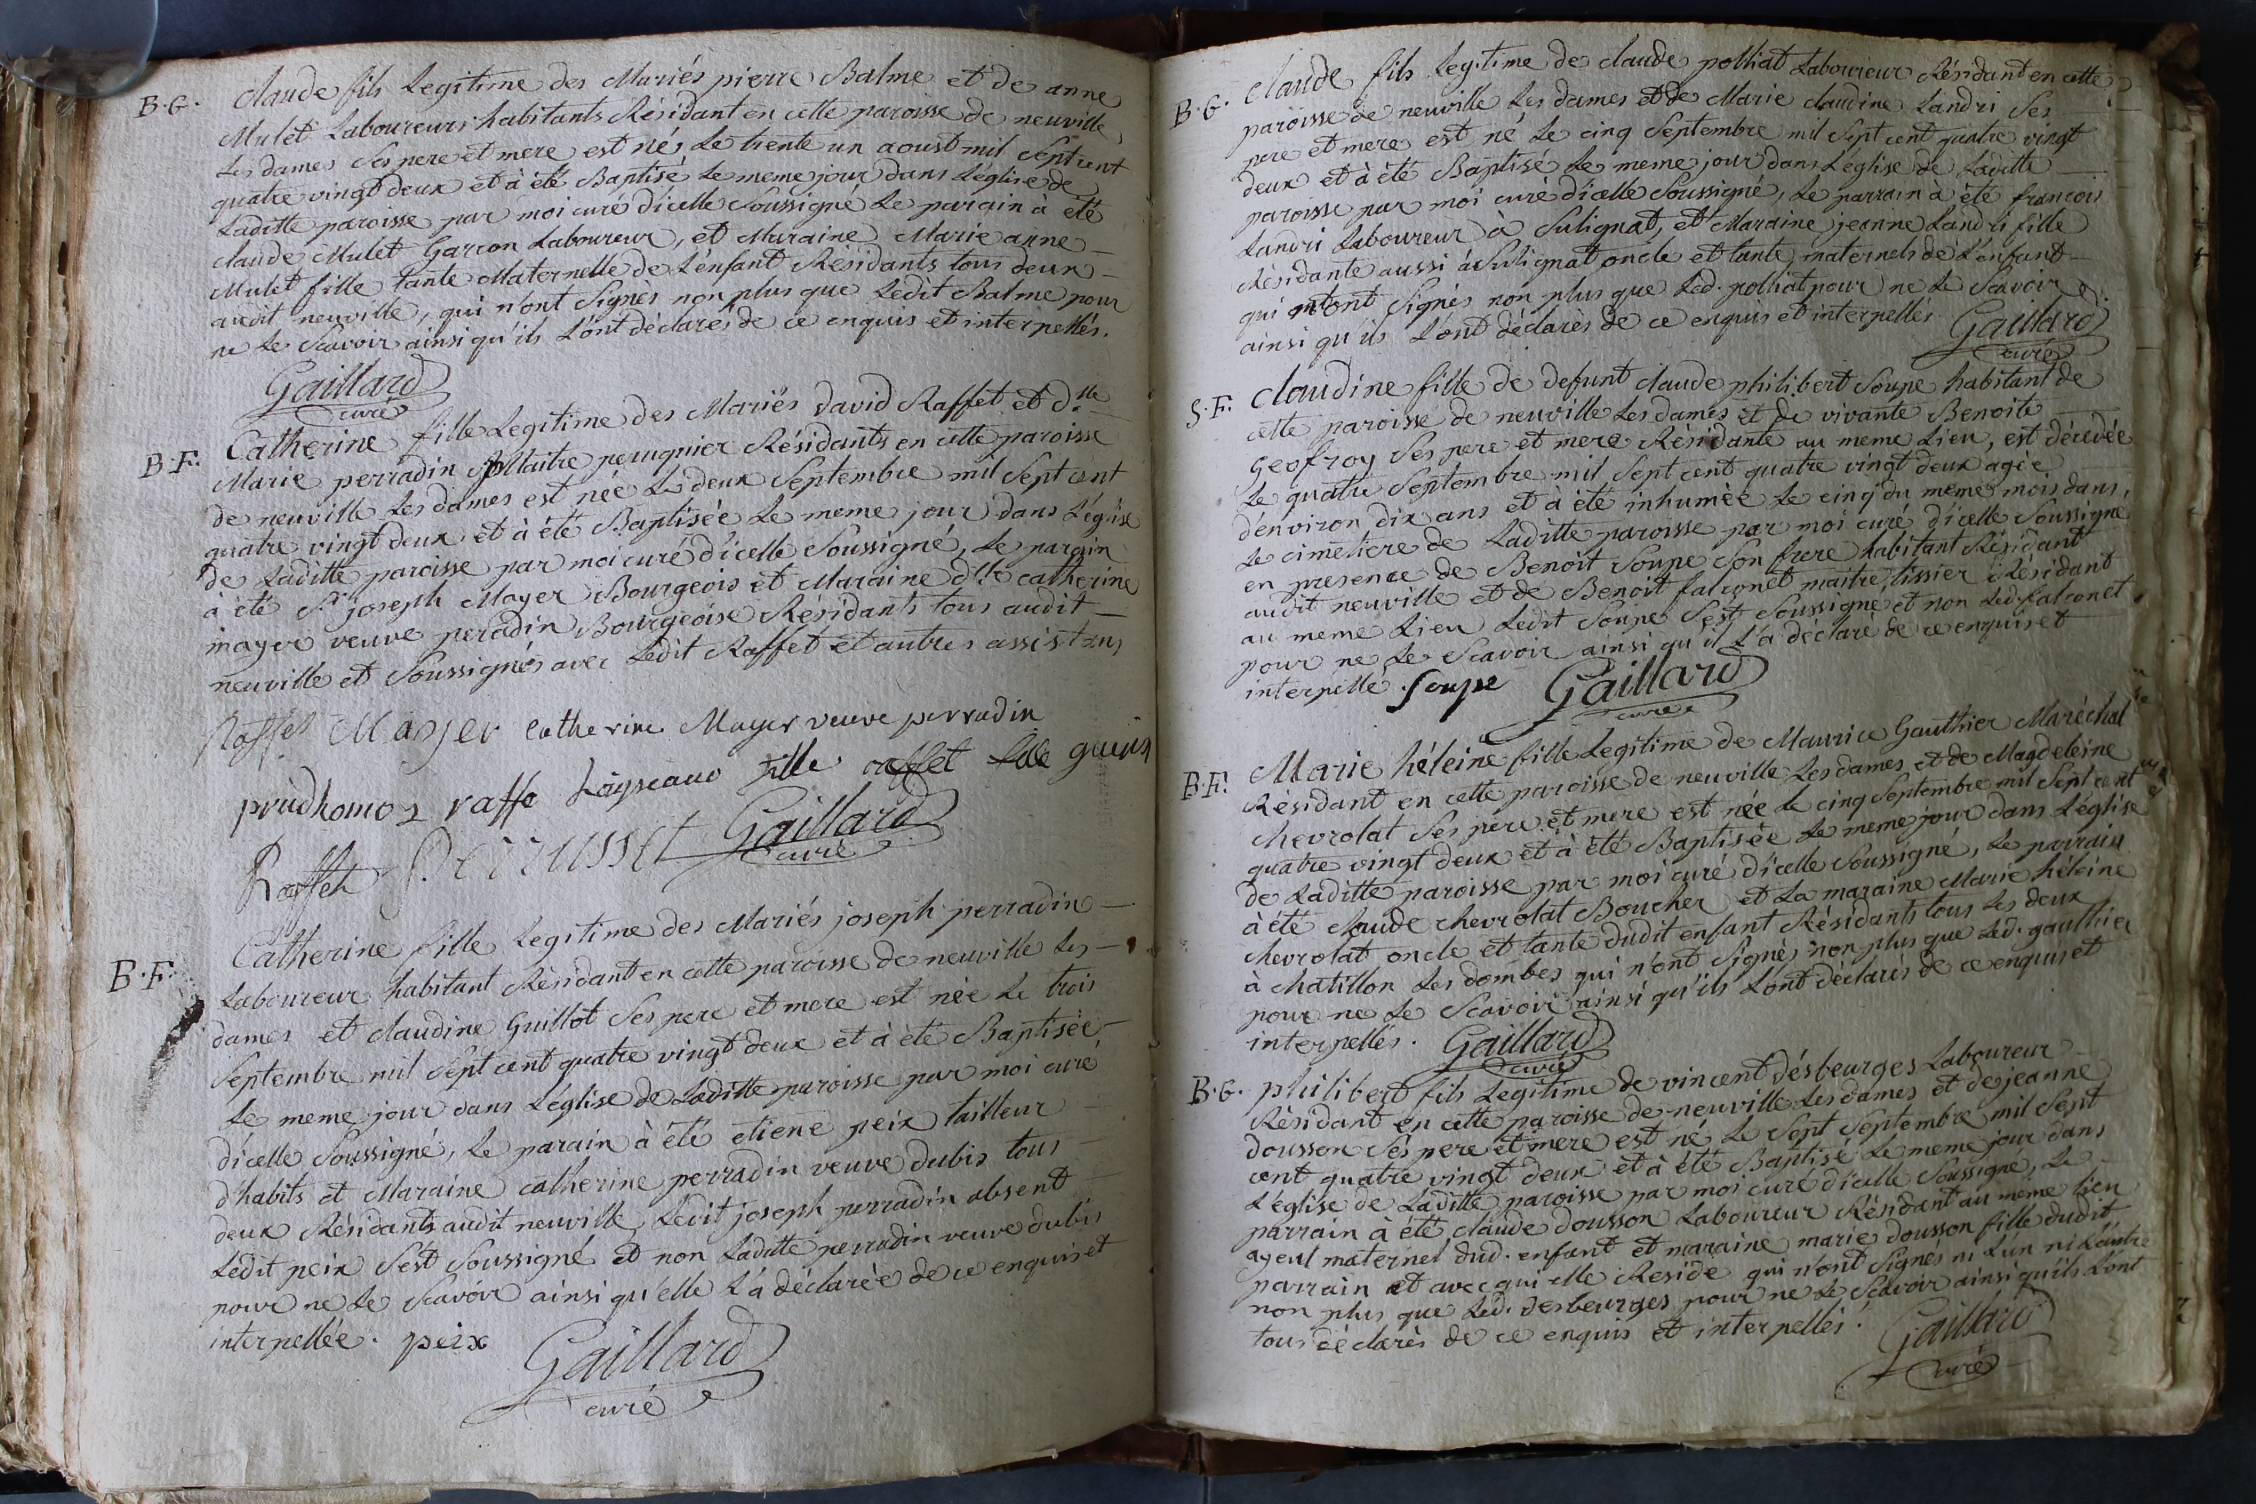 B.G. Claude fils Legitime des Mariés pierre Balme et de anne
Mulet Laboureurs habitants Résidant en cette paroisse de neuville
Les dames Ses pere et mere est né, Le trente un aoust mil Sept cent
quatre vingt deux et à été Baptisé Le meme jour dans L'église de
Laditte paroisse par moi curé d'icelle Soussigné Le parain à été
claude Mulet Garcon Laboureur, et Maraine Marie anne
Mulet fille tante Maternelle de L'enfant Residants tous deux
audit neuville, qui n'ont Signès non plus que Ledit Balme pour
ne Le Scavoir ainsi qu'ils L'ont déclarés de ce enquis et interpellés.
Gaillard
curé
B.F. Catherine fille Legitime des Mariés david Raffet et d.lle
Marie perradin Maitre peruquier Résidants en cette paroisse
de neuville Les dames est née Le deux Septembre mil Sept cent
quatre vingt deux et à été Baptisée Le meme jour dans L'église
de Laditte paroisse par moi curé d'icelle Soussigné, Le parain
à été Sr joseph Mayer Bourgeois et Maraine d.lle catherine
mayer veuve peradin Bourgeoise Résidants tous audit
neuville et Soussignés avec Ledit Raffet et autres assistans
Raffet Mayer Catherine Mayer veuve perradin
prudhomo raffe Loyseau fille raffet guerin
Raffet Perrusset Gaillard
curé
B.F. Catherine fille Legitime des Mariés joseph perradin
Laboureur habitant Résidant en cette paroisse de neuville Les
dames et claudine Guillot Ses pere et mere est née Le trois
Septembre mil Sept cent quatre vingt deux et à été Baptisée
Le meme jour dans L'église de Laditte paroisse par moi curé
d'icelle Soussigné, Le parain à été etiene peix tailleur
d'habits et Maraine catherine perradin veuve dubis tous
deux Résidants audit neuville, Ledit joseph perradin absent
Ledit peix S'est Soussigné et non Laditte perradin veuve dubis
pour ne Le Scavoir ainsi qu'elle L'a déclarée de ce enquis et
interpellée. peix
Gaillard
curé
B.G. Claude fils Legitime de claude polliat Laboureur Résidant en cette
paroisse de neuville Les dames et de Marie claudine Landri Ses
pere et mere est né Le cinq Septembre mil Sept cent quatre vingt
deux et à été Baptisé Le meme jour dans L'église de Laditte
paroisse par moi curé d'icelle Soussigné, Le parrain à été francois
Landri Laboureur à Sulignat, et Maraine jeanne Landri fille
Résidante aussi à Sulignat oncle et tante maternels de L'enfant
qui n'ont Signés non plus que Led. polliat pour ne Le Scavoir
ainsi qu'ils L'ont déclarés de ce enquis et interpellés Gaillard
curé
S.F. Claudine fille de defunt claude philibert Soupe habitant de
cette paroisse de neuville Les dames et de vivante Benoite
Geofroy Ses pere et mere Résidante au meme Lieu, est décedée
Le quatre Septembre mil Sept cent quatre vingt deux agée
d'environ dix ans et à été inhumée Le cinq du meme mois dans
Le cimetiere de Laditte paroisse par moi curé d'icelle Soussigné
en presence de Benoit Soupe Son frere habitant Résidant
audit neuville et de Benoit falconet maitre tissier Résidant
au meme Lieu Ledit Soupe S'est Soussigné et non Led. falconet
pour ne Le Scavoir ainsi qu'il L'a déclaré de ce enquis et
interpellé. Soupe Gaillard
curé
B.F. Marie héleine fille Legitime de Maurice Gauthier Maréchal
Résidant en cette paroisse de neuville Les dames et de Magdeleine
chevrolat Ses pere et mere est née Le cinq Septembre mil Sept cent
quatre vingt deux et à été Baptisée Le meme jour dans L'église
de Laditte paroisse par moi curé d'icelle Soussigné, Le parrain
à été claude chevrolat Boucher et La maraine Marie héleine
chevrolat oncle et tante dudit enfant Résidants tous Les deux
à chatillon Les dombes qui n'ont Signés non plus que Led. gauthier
pour ne Le Scavoir ainsi qu'ils L'ont déclarés de ce enquis et
interpellés. Gaillard
curé
B.G. philibert fils Legitime de vincent désbeurges Laboureur
Résidant en cette paroisse de neuville Les dames et de jeanne
dousson Ses pere et mere est né Le Sept Septembre mil Sept
cent quatre vingt deux et à été Baptisé Le meme jour dans
L'église de Laditte paroisse par moi curé d'icelle Soussigné, Le
parrain à été claude dousson Laboureur Résidant au même lieu
ayeul maternel dud. enfant et maraine marie dousson fille dudit
parrain et avec qui elle Reside qui n'ont Signés ni L'un ni L'autre
non plus que Led. desbeurges pour ne Le Scavoir ainsi qu'ils L'ont
tous déclarés de ce enquis et interpellés. Gaillard
curé